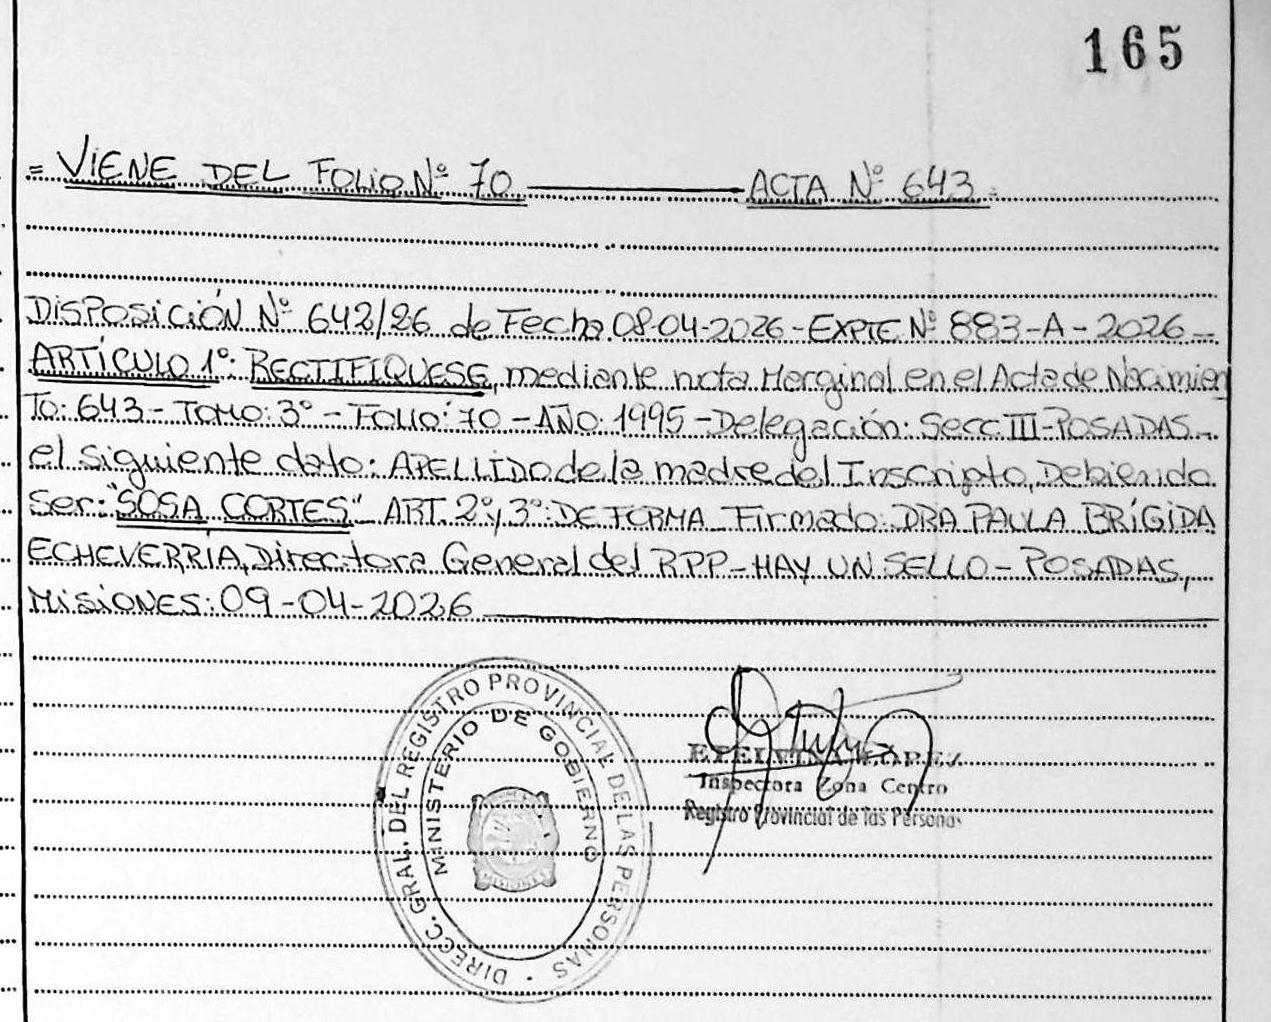 165
= VIENE DEL FOLIO Nº 70 ———— ACTA Nº 643 =
DISPOSICIÓN Nº 642/26 de Fecha 08-04-2026 - EXPTE Nº 883-A-2026 -
ARTÍCULO 1º: RECTIFIQUESE, mediante nota Marginal en el Acta de Nacimien
To: 643 - TOMO: 3º - FOLIO: 70 - AÑO 1995 - Delegación: Secc. III - POSADAS -
el siguiente dato: APELLIDO de la madre del Inscripto, Debiendo
Ser: "SOSA CORTES" ART. 2º y 3º: DE FORMA - Firmado: DRA PAULA BRÍGIDA
ECHEVERRÍA, Directora General del RPP - HAY UN SELLO - POSADAS,
MISIONES: 09-04-2026
DIRECC. GRAL. DEL REGISTRO PROVINCIAL DE LAS PERSONAS
MINISTERIO DE GOBIERNO
MISIONES
LOPEZ
Inspectora Zona Centro
Registro Provincial de las Personas